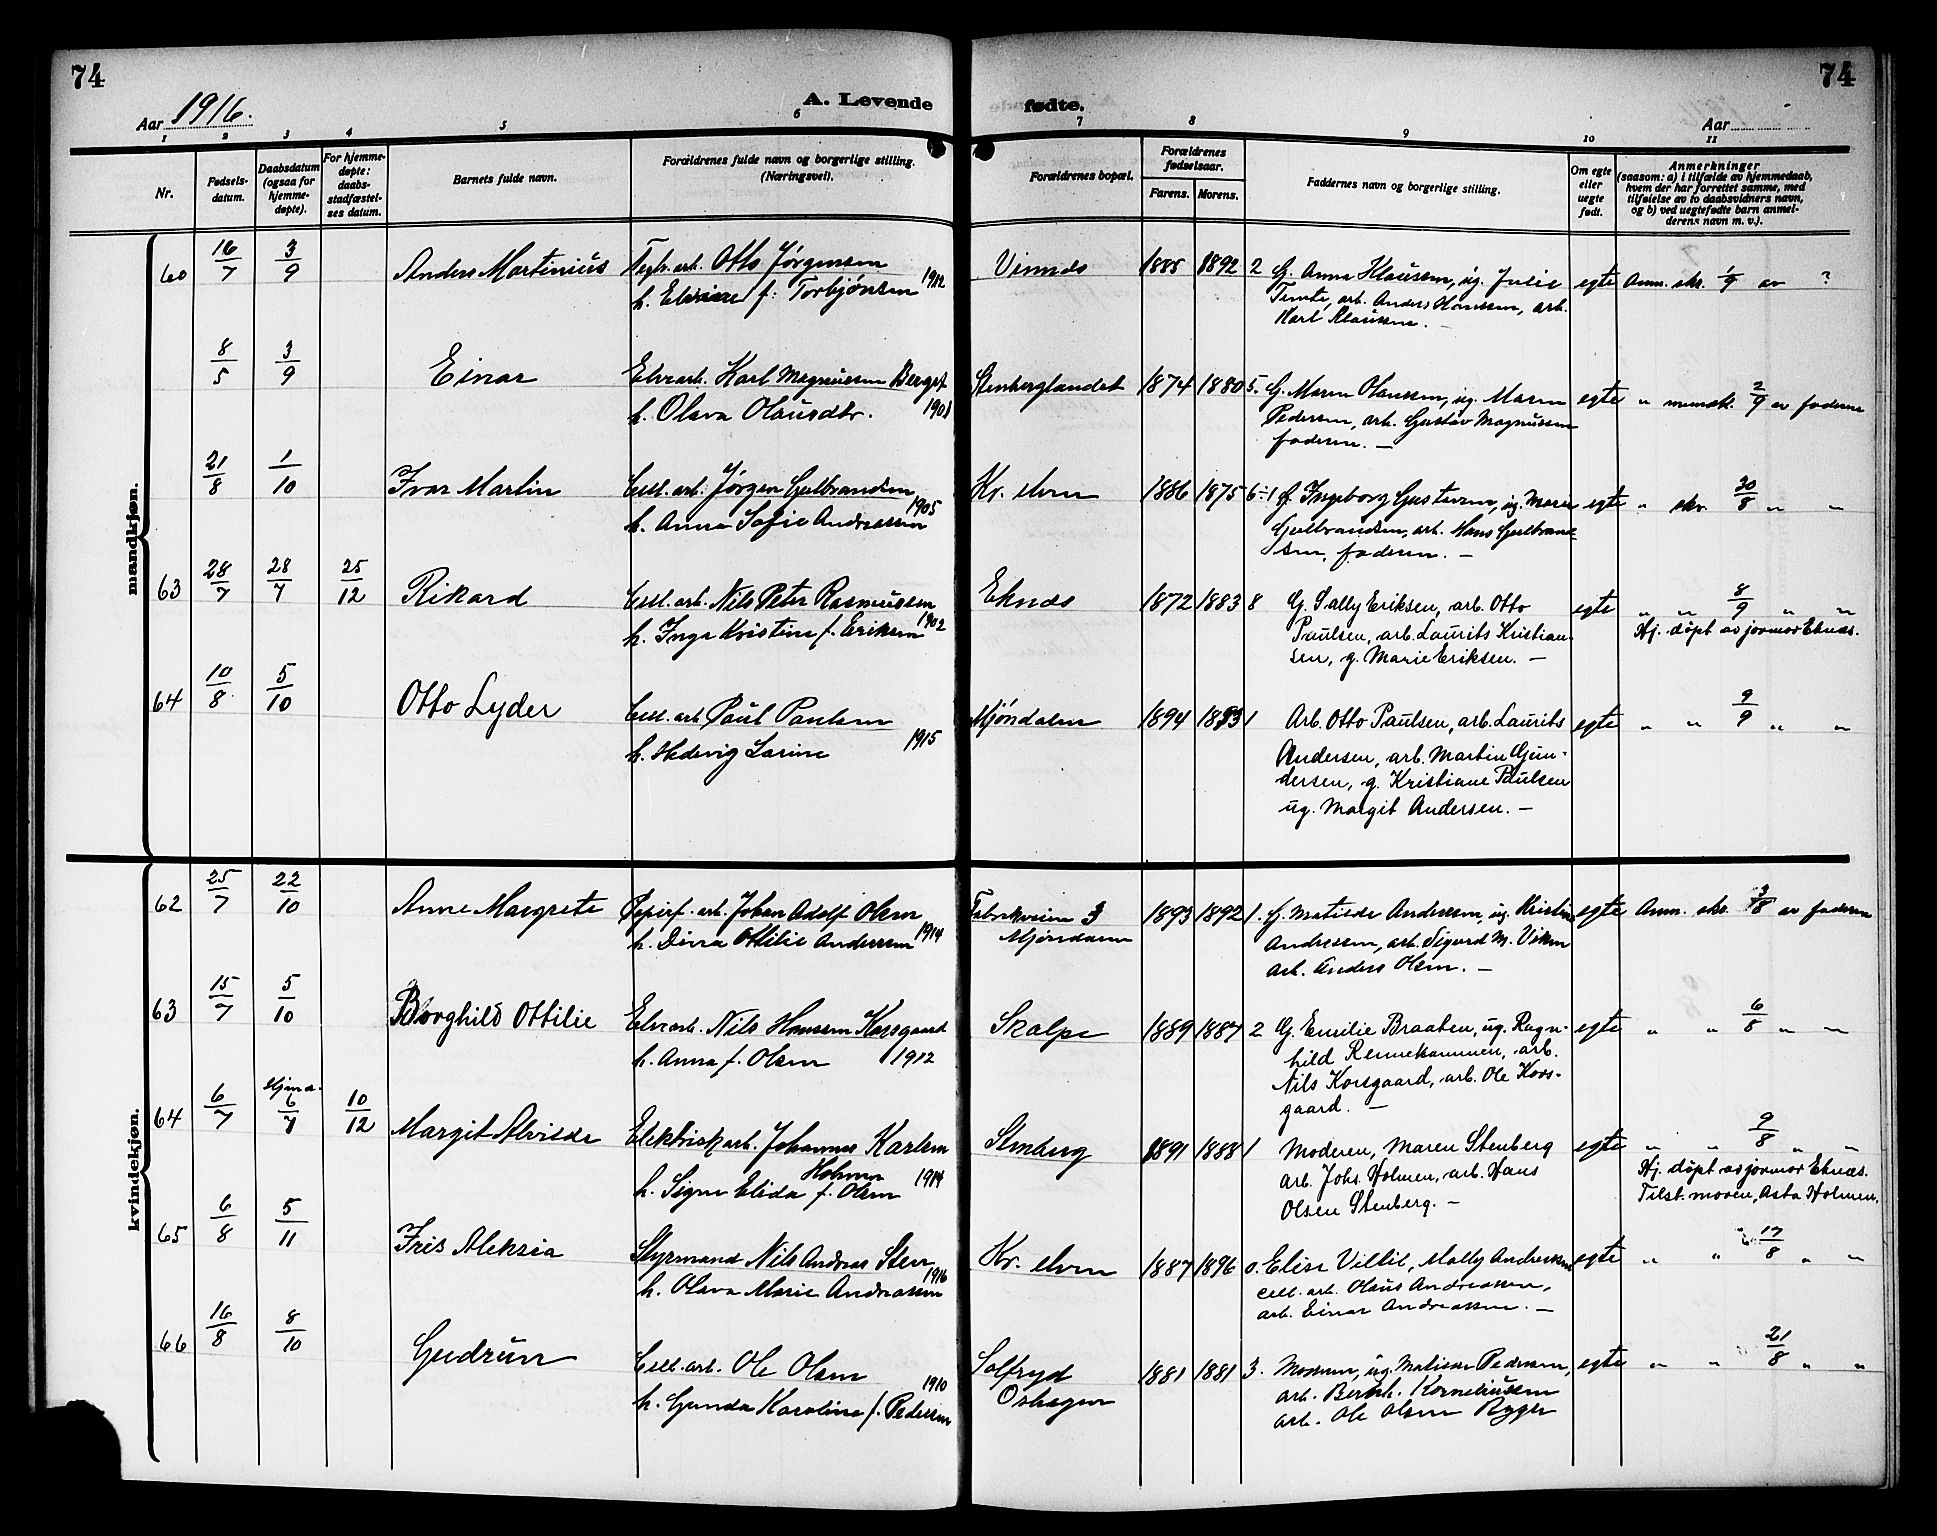 74
74
Aar 1916.
A. Levende
fødte.
Aar
1 2 3 4 5 6 7 8 9 10 11
Nr.
Fødsels-
datum.
Daabsdatum
(ogsaa for
hjemme-
døpte).
For hjemme-
døpte:
daabs-
stadfæstel-
ses datum.
Barnets fulde navn.
Forældrenes fulde navn og borgerlige stilling.
(Næringsvei).
Forældrenes bopæl.
Forældrenes
fødselsaar.
Farens.
Morens.
Faddernes navn og borgerlige stilling.
Om egte
eller
uegte
født.
Anmerkninger
(saasom: a) i tilfælde av hjemmedaab,
hvem der har forrettet samme, med
tilføielse av to daabsvidners navn,
og b) ved uegtefødte barn anmel-
derens navn m. v.).
mandkjøn.
60 16/7 3/9 Anders Martinius Teglv.arb. Otto Jørgensen
h. Elvine f. Torbjønsen 1912
Vinnes 1885 1892 2 G. Anna Klausen, ug. Julie
Temte, arb. Anders Hanssen, arb.
Karl Klausen. —
egte Anm. skr. 1/9 av ?
8/5 3/9 Einar Elvearb. Karl Magnussen Berget
h. Olava Olausdtr. 1901
Stenberglandet 1874 1880 5. G. Maren Olaussen, ug. Maren
Pedersen, arb. Gustav Magnussen
faderen. —
egte " mundtl. 2/9 av faderen
21/8 1/10 Ivar Martin Cell. arb. Jørgen Gulbrandsen
h. Anna Sofie Andreassen 1905
Kr. elven 1886 1875 6÷1 G. Ingeborg Gustavsen, ug. Marie
Gulbrandsen, arb. Hans Gulbrand-
sen, faderen. —
egte " skr. 30/8 " "
63 28/7 28/7 25/12 Rikard Cell. arb. Nils Peter Rasmussen
h. Inga Kristine f. Eriksen 1902
Eknes 1872 1883 8 G. Sally Eriksen, arb. Otto
Paulsen, arb. Laurits Kristian-
sen, g. Marie Eriksen. —
egte " " 8/9 " "
Hj. døpt av jormor Eknæs.
64 10/8 5/10 Otto Lyder Cell. arb Paul Paulsen
h. Hedevig Larine 1915
Mjøndalen 1894 1893 1 Arb. Otto Paulsen, arb. Laurits
Andersen, arb. Martin Gun-
dersen, g. Kristiane Paulsen
ug. Margit Andersen. —
egte " " 9/9 " "
kvindekjøn.
62 25/7 22/10 Anne Margrete Papirf. arb. Johan Adolf Olsen
h. Dina Ottilie Andersen 1914
Fabrikveien 3
Mjøndalen 1893 1892 1. G. Matilde Andersen, ug. Kristine
Andressen, arb. Sigurd M. Viken
arb. Anders Olsen. —
egte Anm. skr. 3/8 av faderen
63 15/7 5/10 Borghild Ottilie Elvearb. Nils Hansen Korsgaard
h. Anna f. Olsen 1912
Skalpe 1889 1887 2 G. Emilie Braaten, ug. Ragn-
hild Rennekammen, arb.
Nils Korsgaard, arb. Ole Kors-
gaard. —
egte " " 6/8 " "
64 6/7 Hjmd. 6/7 10/12 Margit Alvilde Elektriskarb. Johannes Karlsen
Holmen
h. Signe Elida f. Olsen 1914
Stenberg 1891 1888 1 Moderen, Maren Stenberg
arb. Johs. Holmen, arb. Hans
Olsen Stenberg. —
egte " " 9/8 " "
Hj. døpt av jormor Eknæs.
Tilst. moren, Asta Holmen.
65 6/8 5/11 Iris Aleksia Styrmand Nils Andreas Steen
h. Olava Marie Andreassen 1916
Kr. elven 1887 1896 0. Elise Villil, Molly Andreassen
cell. arb. Olaus Andreassen,
arb. Einar Andreassen. —
egte " " 17/8 " "
66 16/8 8/10 Gudrun Cell. arb. Ole Olsen
h. Gunda Karoline f. Pedersen 1910
Solfryd
Oshagen 1881 1881 3. Moderen, ug. Matilde Pedersen,
arb. Bernh. Korneliussen
arb. Ole Olsen Rygg
egte " " 21/8 " "